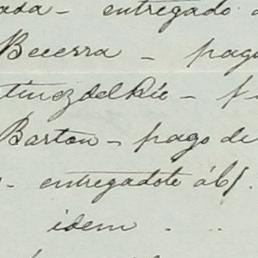 ada - entregado a
Becerra - pago
tinez del Rio - f
Barton - pago de
- entregadote á Cs.
idem . .